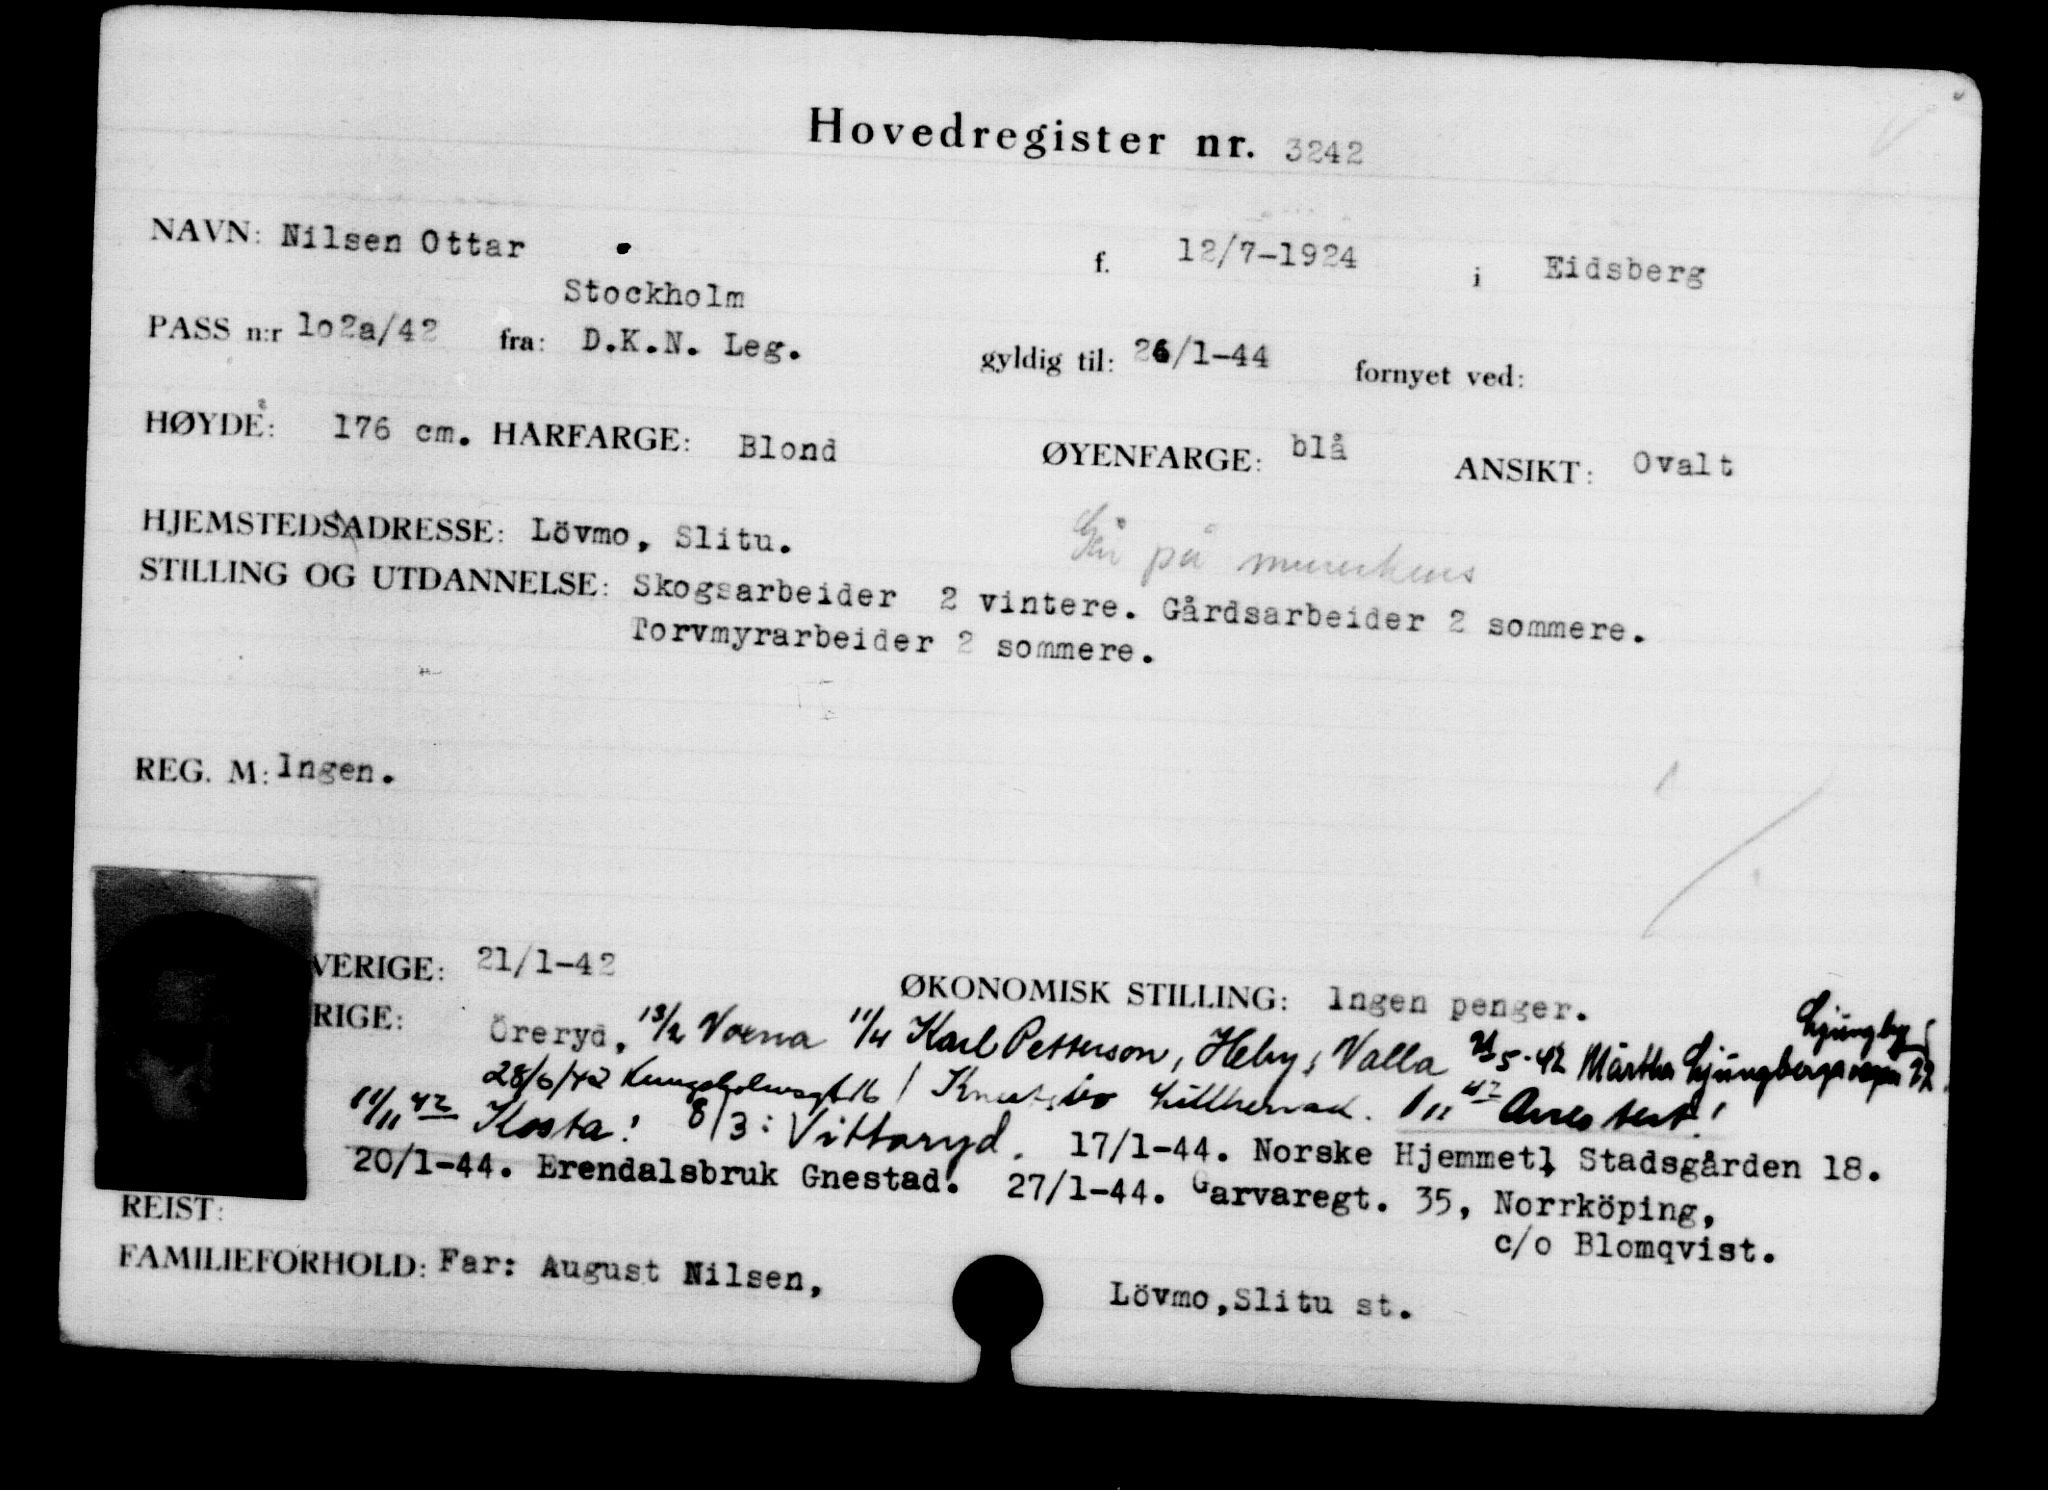 Hovedregister nr. 3242
NAVN: Nilsen Ottar f. 12/7-1924 i Eidsberg
Stockholm
PASS n:r lo2a/42 fra: D.K.N. Leg. gyldig til: 26/1-44 fornyet ved:
HØYDE: 176 cm. HARFARGE: Blond ØYENFARGE: blå ANSIKT: Ovalt
HJEMSTEDSADRESSE: Lövmo, Slitu.
på
STILLING OG UTDANNELSE: Skogsarbeider 2 vintere. Gårdsarbeider 2 sommere.
Torvmyrarbeider 2 sommere.
REG. M: Ingen.
VERIGE: 21/1-42 ØKONOMISK STILLING: Ingen penger.
Ljungby
RIGE: Öreryd, 13/2 Voxna 11/4 Karl Petterson, Heby, Valla 5-42 Märtha Ljungbergsvegen 22.
28/6/42 Kungsholmsgt 16 / 11/11 42 Arrestert!
11/11 42 Kosta! 8/3: Vittaryd. 17/1-44. Norske Hjemmet, Stadsgården 18.
20/1-44. Erendalsbruk Gnestad. 27/1-44. Garvaregt. 35, Norrköping,
c/o Blomqvist.
REIST:
FAMILIEFORHOLD: Far: August Nilsen, Lövmo, Slitu st.